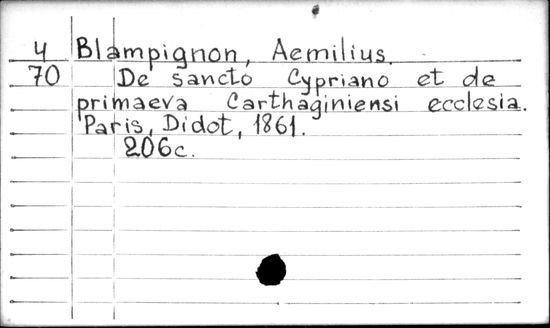 4 Blampignon, Aemilius.
70 De sancto Cypriano et de
primaeva Carthaginiensi ecclesia.
Paris, Didot, 1861.
206c.